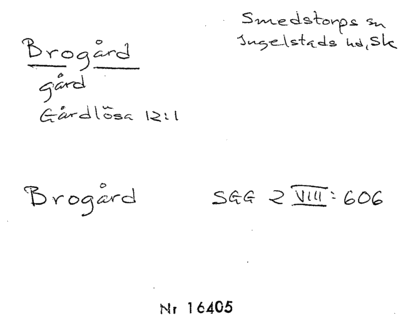 Smedstorps sn
Ingelstads hd, Sk
Brogård
gård
Gårdlösa 12:1
Brogård SGG 2 VIII: 606
Nr 16405